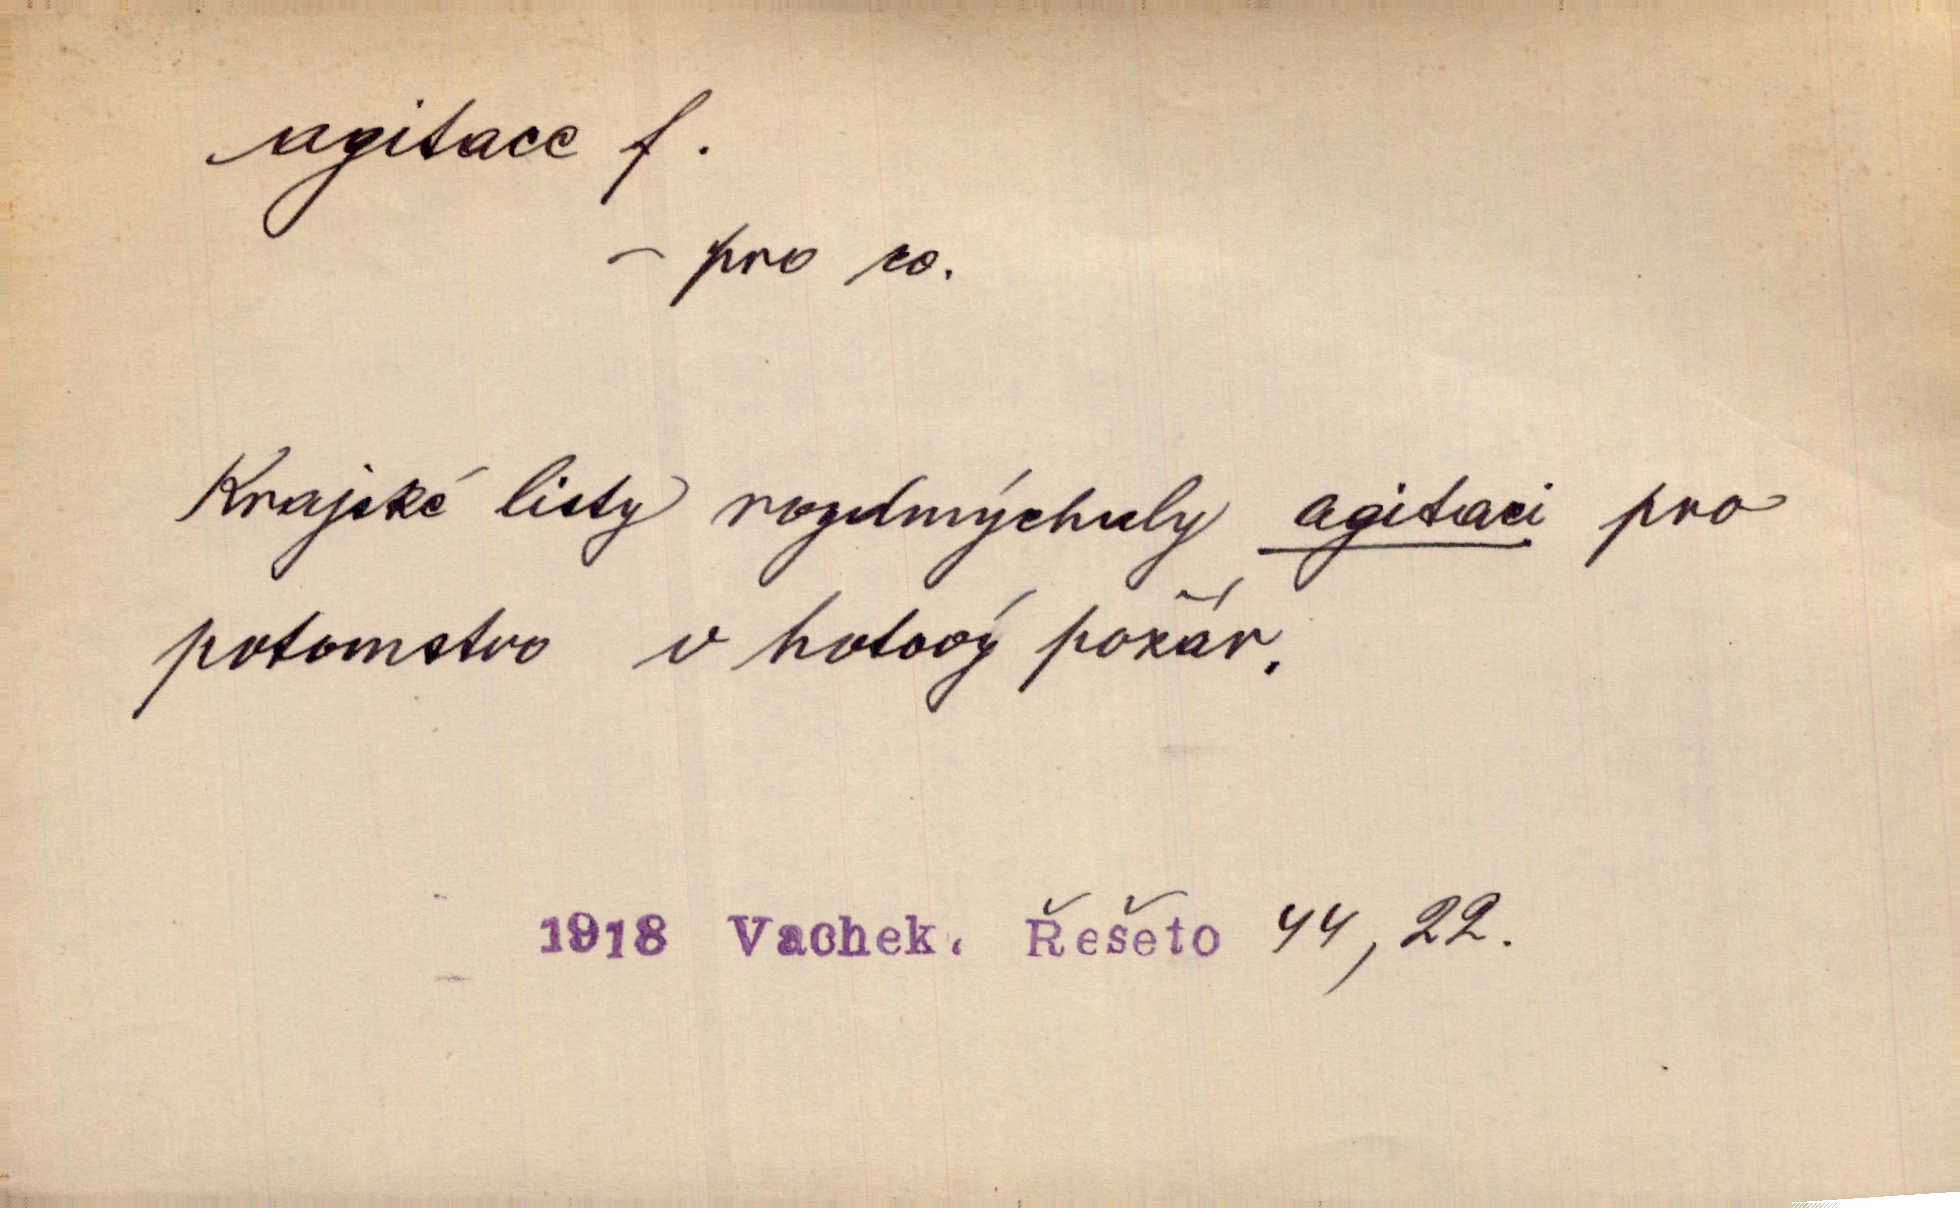 agitace f.
– pro co.
Krajské listy rozdmýchaly agitaci pro
potomstvo v hotový požár.
1918 Vachek. Řešeto 44, 22.